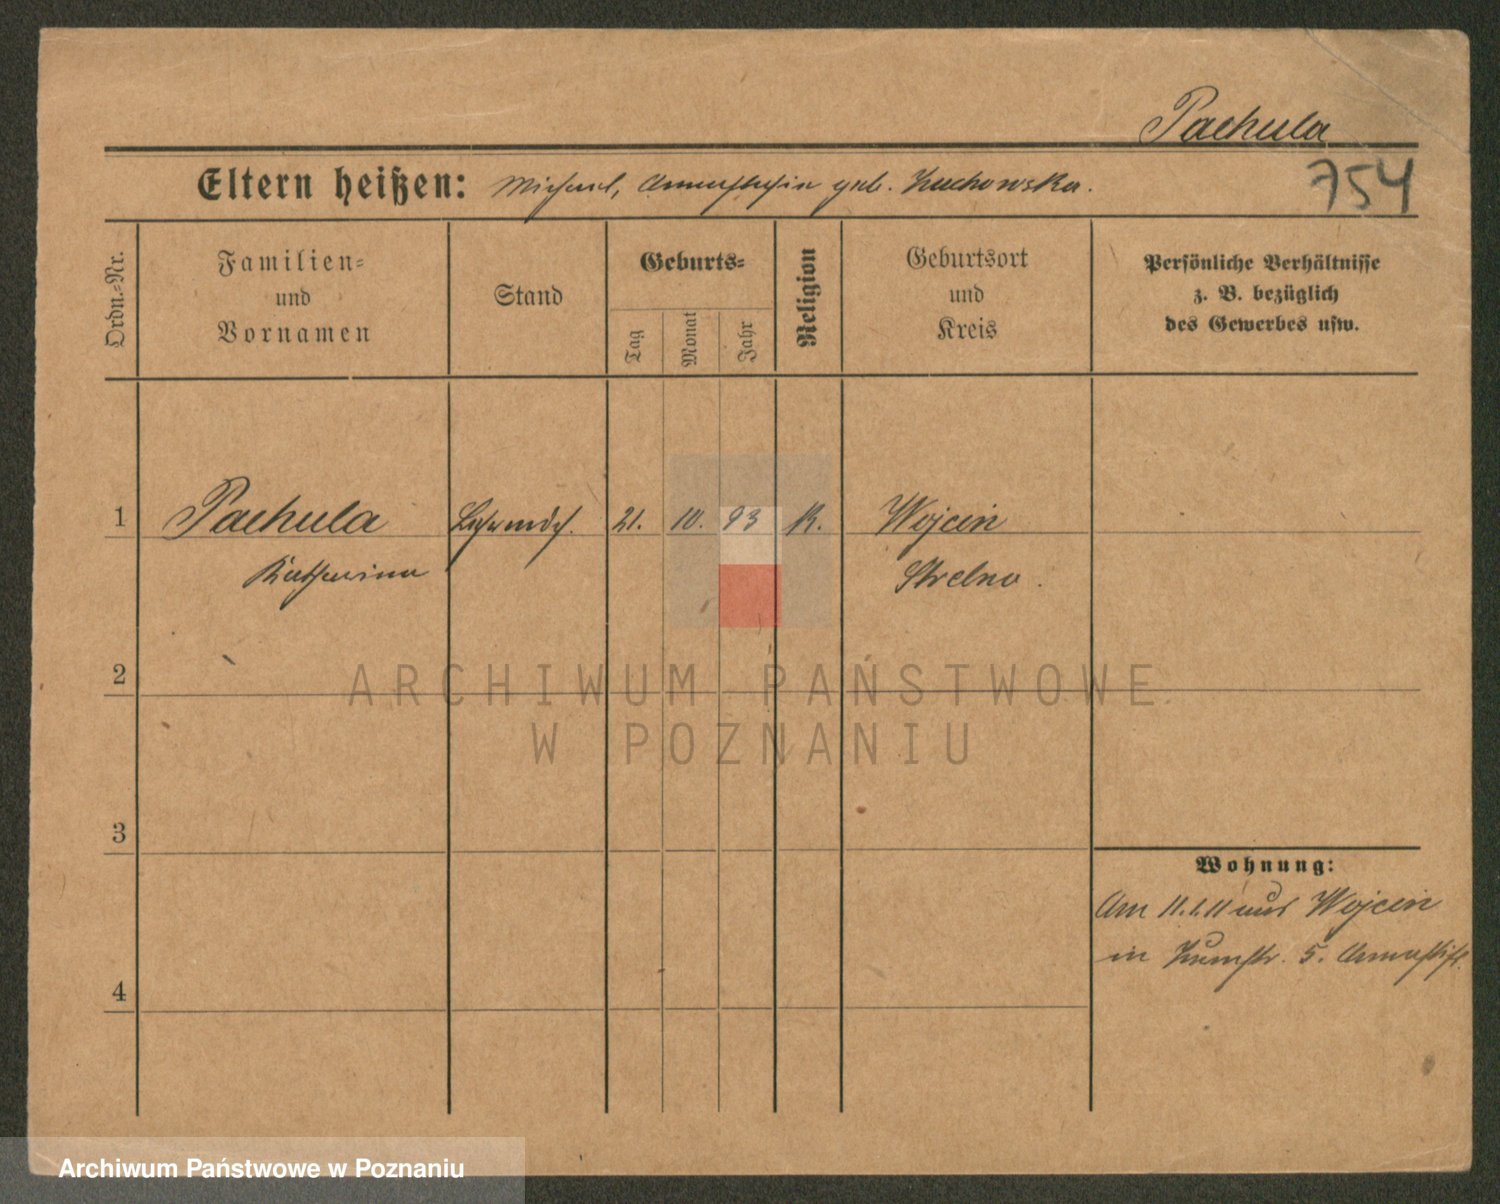 Pachula
Eltern heißen: Michael, Annastasia geb. Zuchowska.
754
Ordn.-Nr.
Familien-
und
Vornamen
Stand
Geburts-
Tag
Monat
Jahr
Religion
Geburtsort
und
Kreis
Persönliche Verhältnisse
z. B. bezüglich
des Gewerbes usw.
1 Pachula 21. 10. 93 K. Wojcin
Katharina Strelno.
2
ARCHIWUM PAŃSTWOWE
W POZNANIU
3
Wohnung:
Am 11.1.11 aus Wojcin
in 5.
4
Archiwum Państwowe w Poznaniu